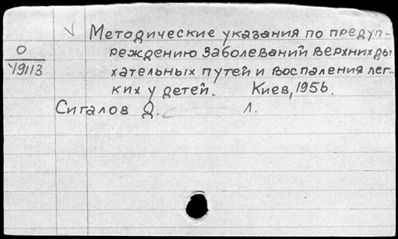 Методические указания по предуп-
О
У9113
реждению заболеваний верхних ды
хательных путей и воспаления лег-
ких у детей. Киев, 1956.
Сигалов Д. Л.